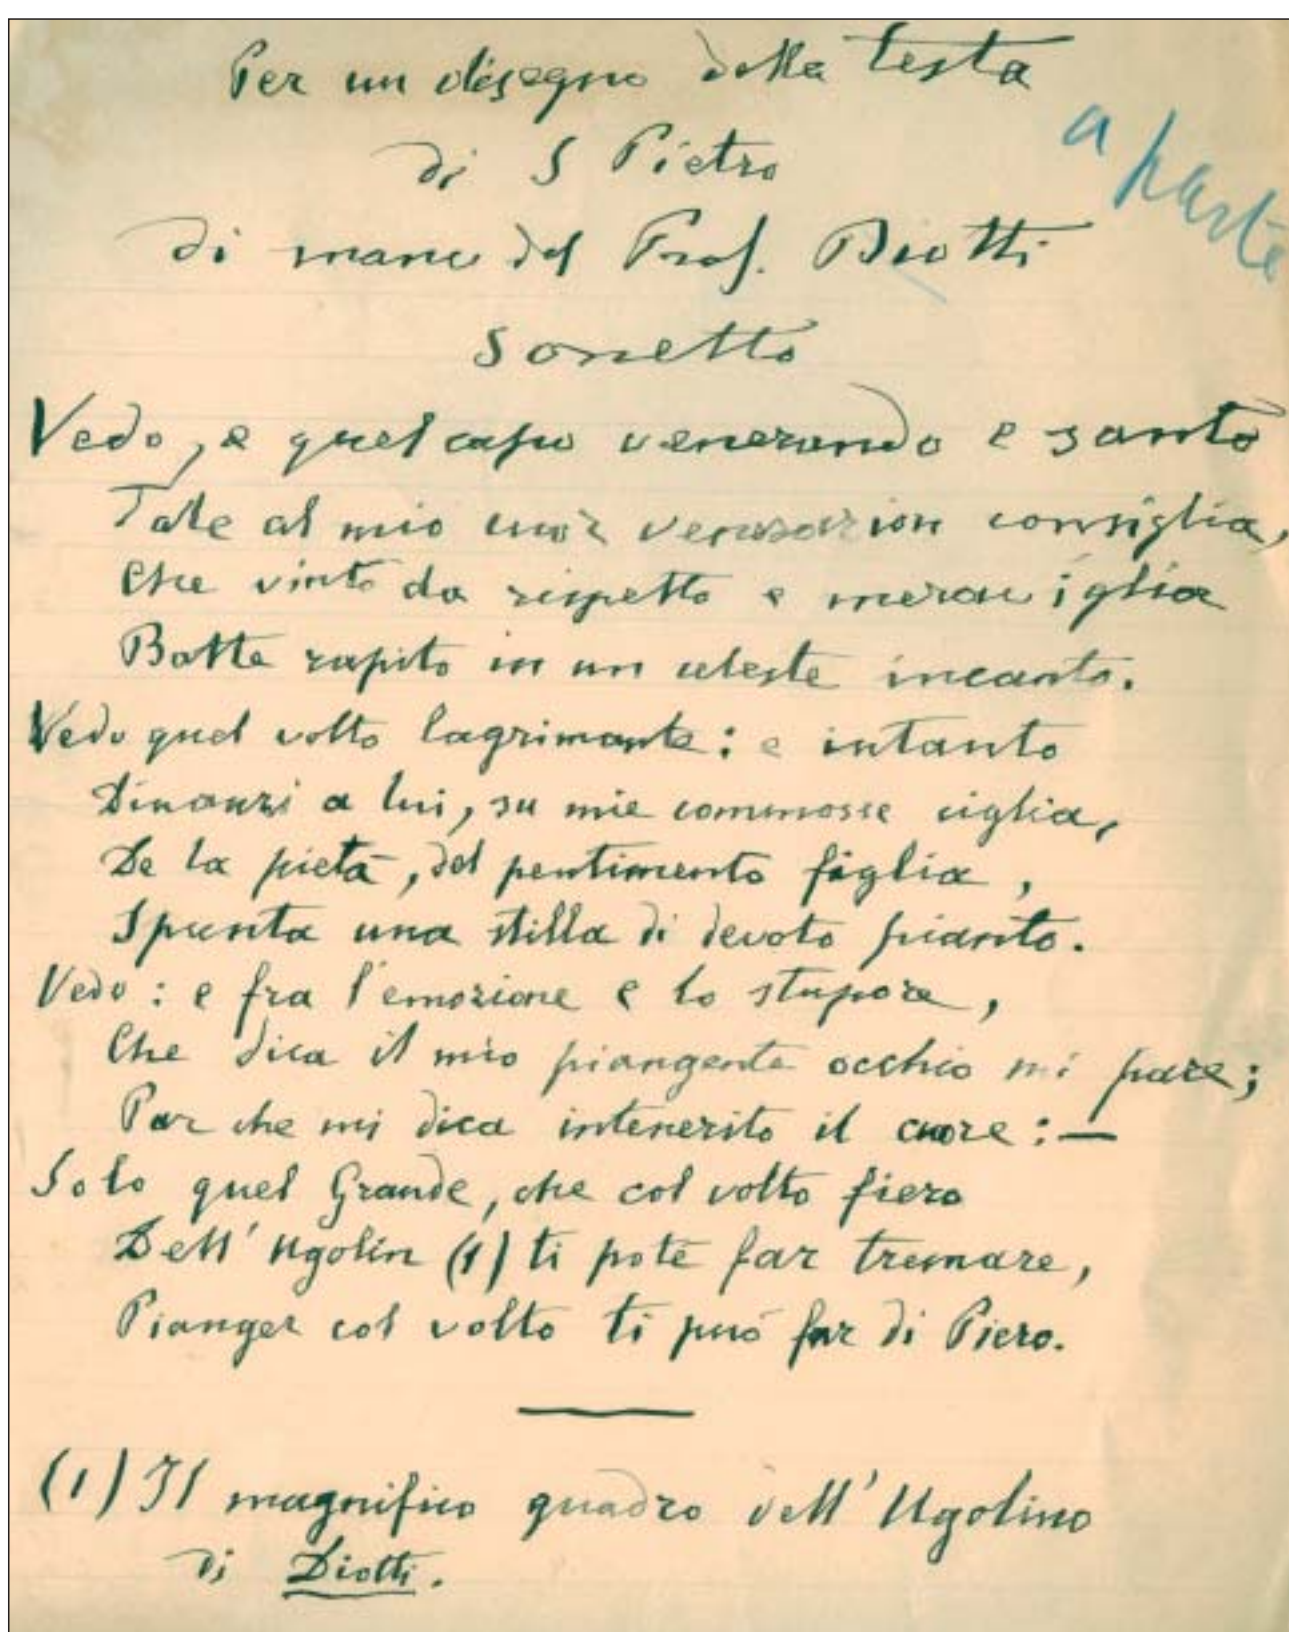 Per un disegno della testa
di S Pietro
a parte
di mano del Prof. Diotti
Sonetto
Vedo, e quel capo venerando e santo
Tale al mio cuor venerazion consiglia,
Che vinto da rispetto e meraviglia
Batte rapito in un celeste incanto.
Vedo quel volto lagrimante: e intanto
Dinanzi a lui, su mie commosse ciglia,
De la pietà, del pentimento figlia,
Spunta una stilla di devoto pianto.
Vedo: e fra l'emozione e lo stupore,
Che dica il mio piangente occhio mi pare;
Par che mi dica intenerito il cuore: —
Solo quel Grande, che col volto fiero
Dell' Ugolin (1) ti potè far tremare,
Pianger col volto ti può far di Piero.
(1) Il magnifico quadro dell' Ugolino
di Diotti.